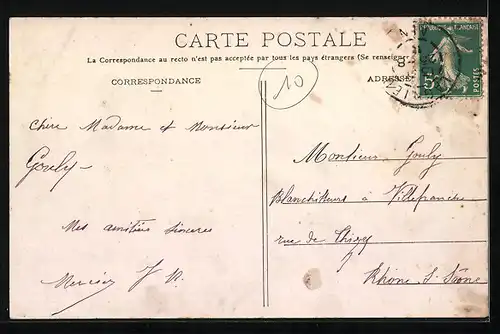 CARTE POSTALE
La Correspondance au recto n'est pas acceptée par tous les pays étrangers (Se renseigner
CORRESPONDANCE
ADRESSE
10
5c
POSTES
Chère Madame et Monsieur
Gouly
Mes amitiés sincères
Monsieur Gouly
Blanchisseurs à Villefranche
rue de Thizy
Rhône S. Saône